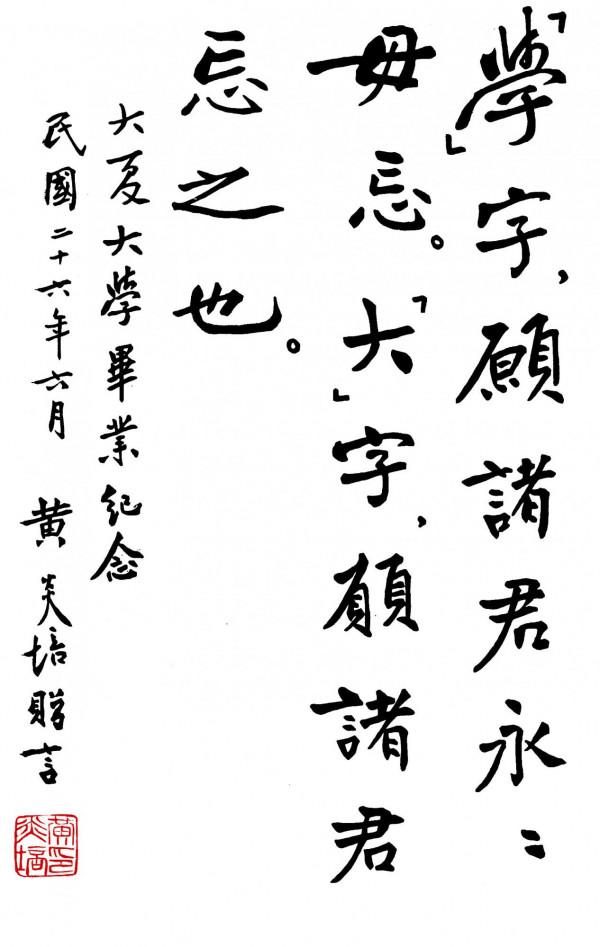 「學」字，願諸君永〻
毋忘。「大」字，願諸君
忘之也。
大夏大學畢業紀念
民國二十六年六月 黃炎培贈言
黃炎培印